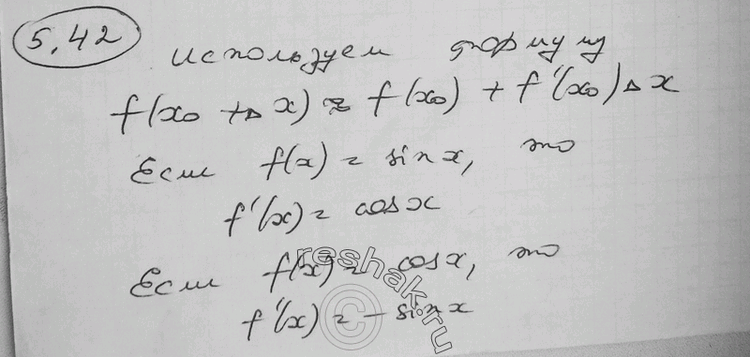 5.42
используем формулу
f(x₀ + Δx) ≈ f(x₀) + f'(x₀)Δx
Если f(x) = sinx, то
f'(x) = cosx
Если f(x) = cosx, то
f'(x) = - sinx
reshak.ru
©